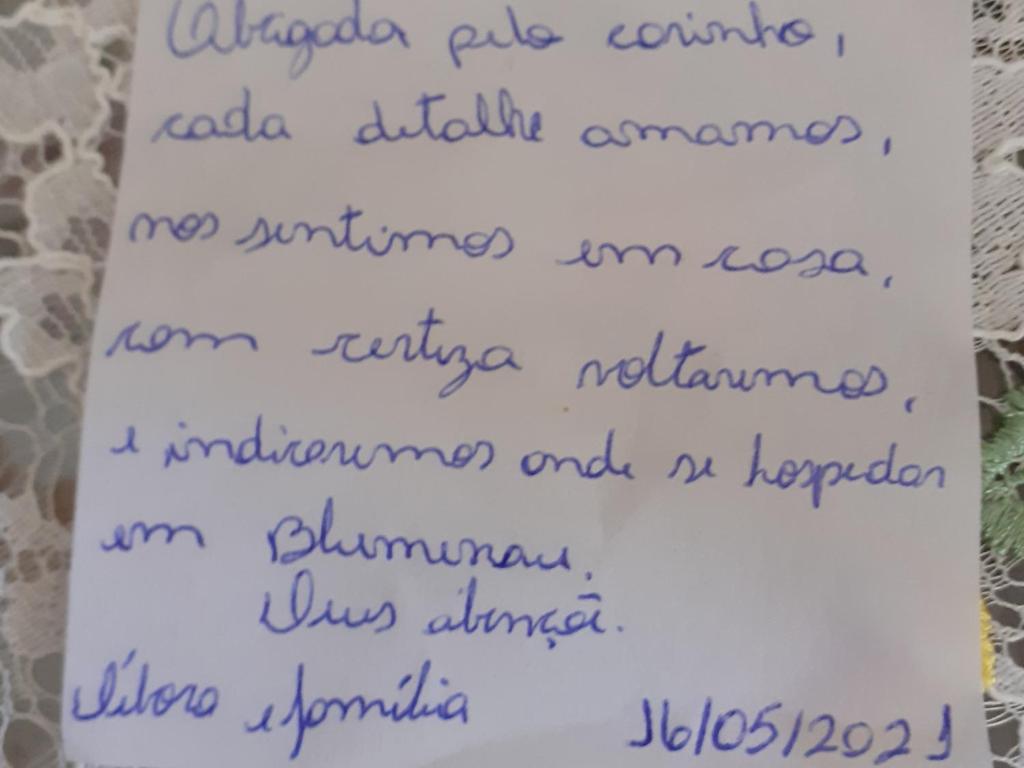 Obrigada pelo carinho,
cada detalhe amamos,
nos sentimos em casa,
com certeza voltaremos,
e indicaremos onde se hospedar
em Blumenau.
Deus abençõe.
Débora e família 16/05/2021